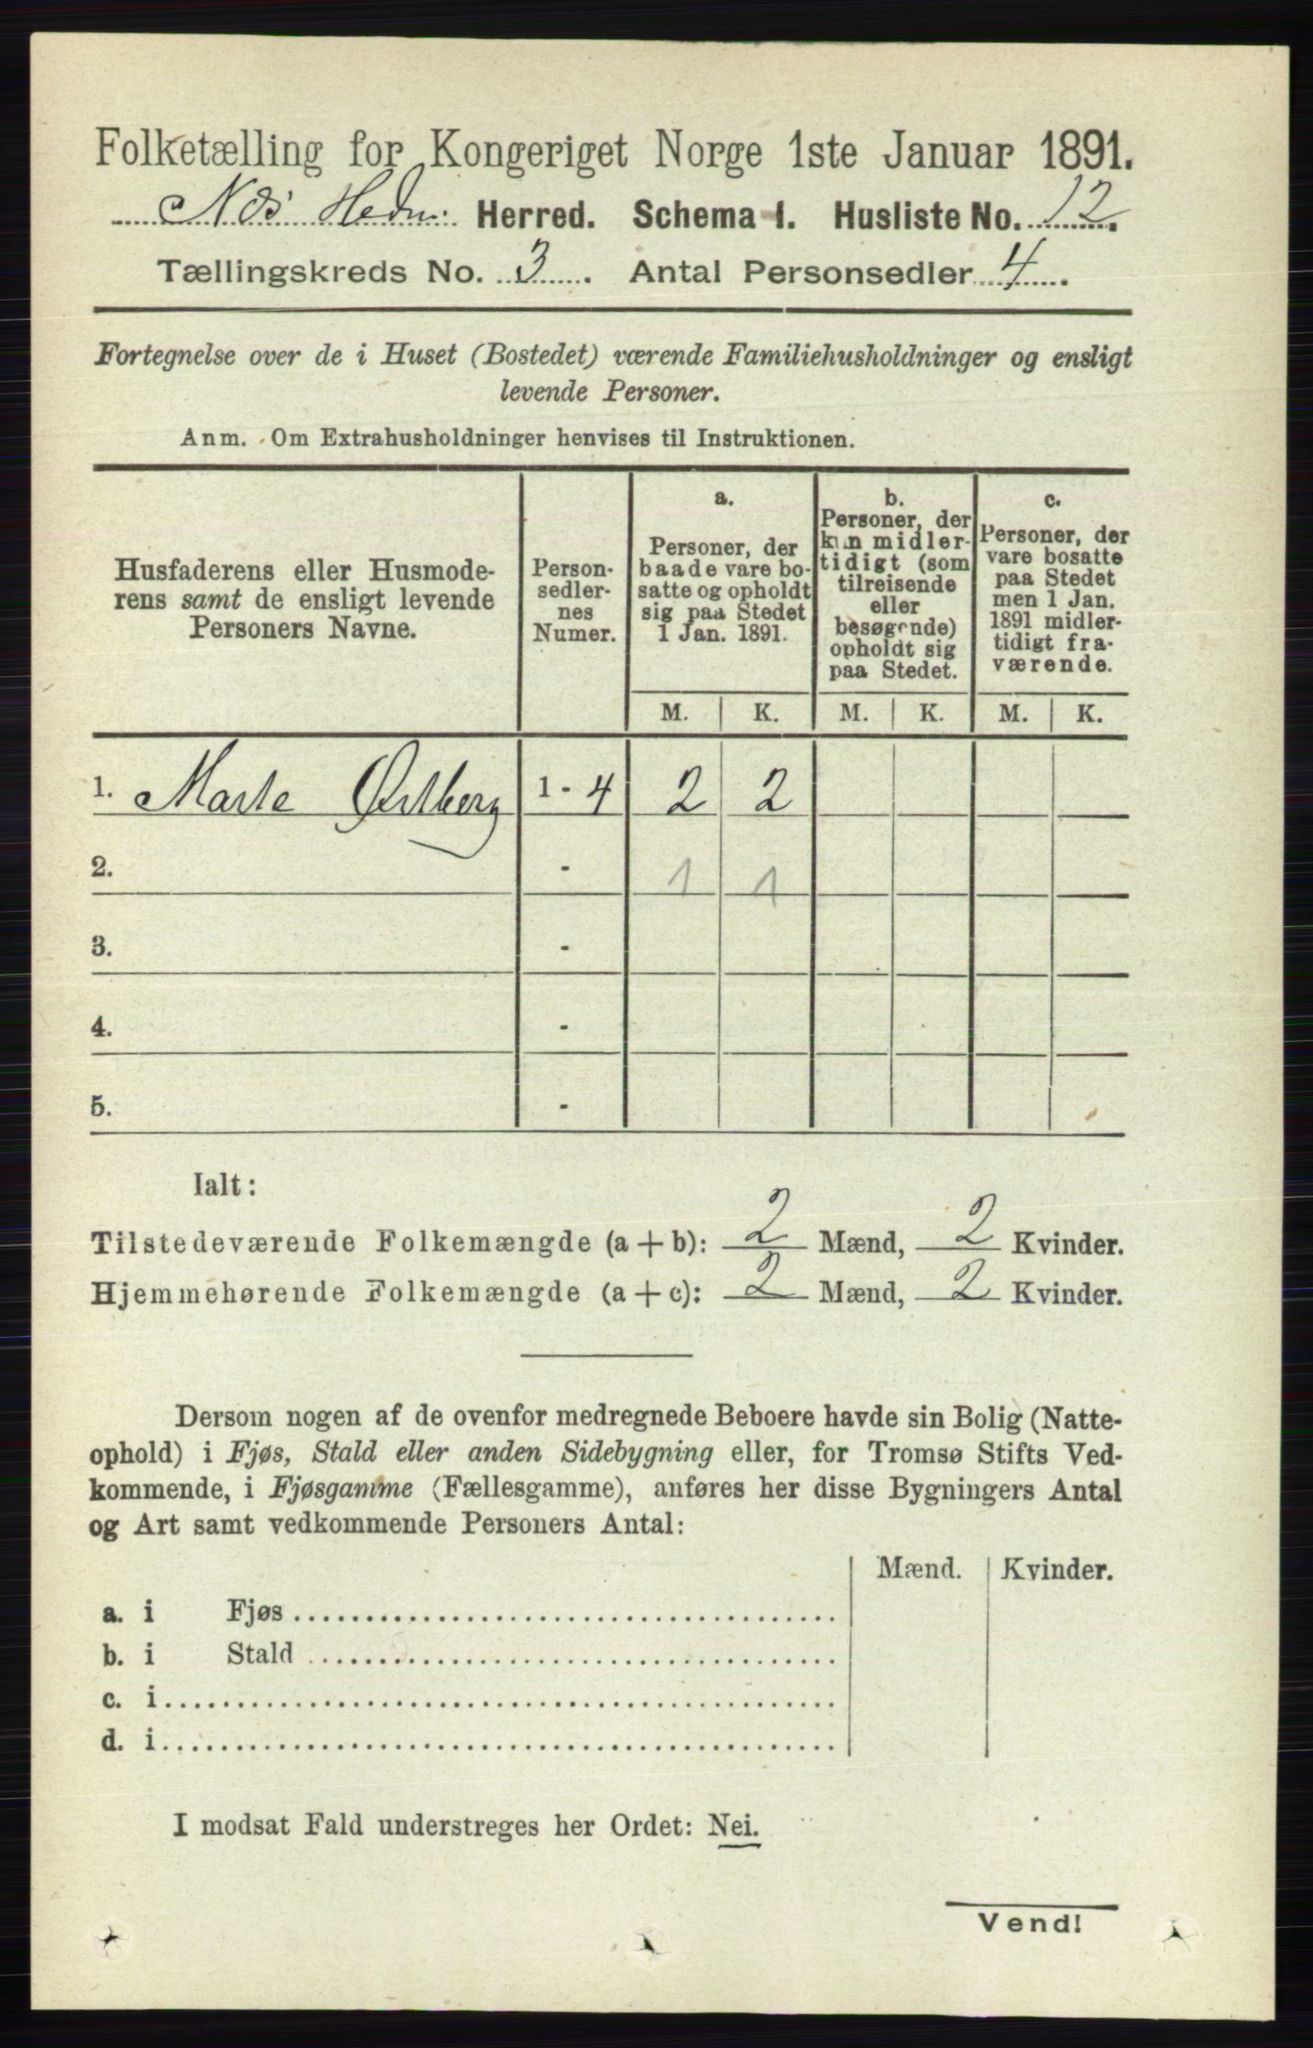 Folketælling for Kongeriget Norge 1ste Januar 1891.
Nes Hedm: Herred. Schema 1. Husliste No. 12.
Tællingskreds No. 3. Antal Personsedler 4.
Fortegnelse over de i Huset (Bostedet) værende Familiehusholdninger og ensligt
levende Personer.
Anm. Om Extrahusholdninger henvises til Instruktionen.
Husfaderens eller Husmode-
rens samt de ensligt levende
Personers Navne.
Person-
sedler-
nes
Numer.
a.
Personer, der
baade vare bo-
satte og opholdt
sig paa Stedet
1 Jan. 1891.
b.
Personer, der
kun midler-
tidigt (som
tilreisende
eller
besøgende)
opholdt sig
paa Stedet.
c.
Personer, der
vare bosatte
paa Stedet
men 1 Jan.
1891 midler-
tidigt fra-
værende.
M. K. M. K. M. K.
1. Marte Østberg 1 - 4 2 2
2. - 1 1
3. -
4. -
5. -
Ialt:
Tilstedeværende Folkemængde (a + b): 2 Mænd, 2 Kvinder.
Hjemmehørende Folkemængde (a + c): 2 Mænd, 2 Kvinder.
Dersom nogen af de ovenfor medregnede Beboere havde sin Bolig (Natte-
ophold) i Fjøs, Stald eller anden Sidebygning eller, for Tromsø Stifts Ved-
kommende, i Fjøsgamme (Fællesgamme), anføres her disse Bygningers Antal
og Art samt vedkommende Personers Antal:
Mænd. Kvinder.
a. i Fjøs
b. i Stald
c. i
d. i
I modsat Fald understreges her Ordet: Nei.
Vend!